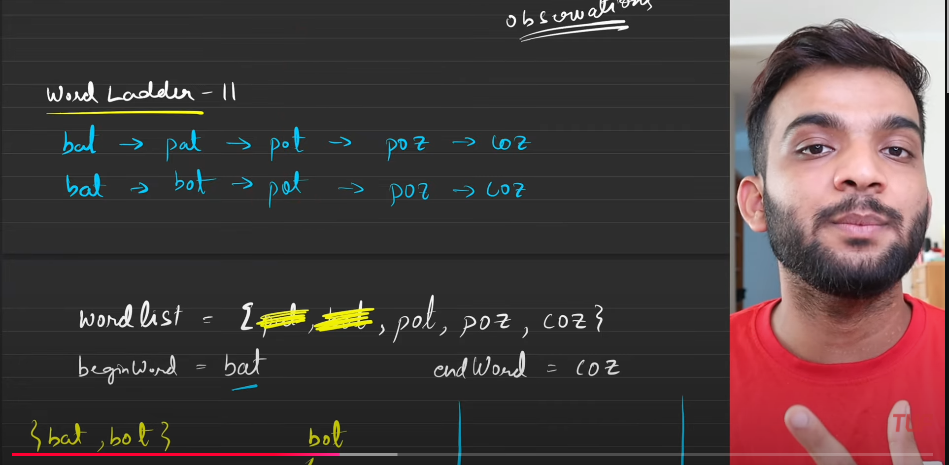 observations
Word Ladder - II
bat → pat → pot → poz → coz
bat → bot → pot → poz → coz
wordlist = { , , pot, poz, coz}
beginWord = bat endWord = coz
{bat, bot} bot
TU